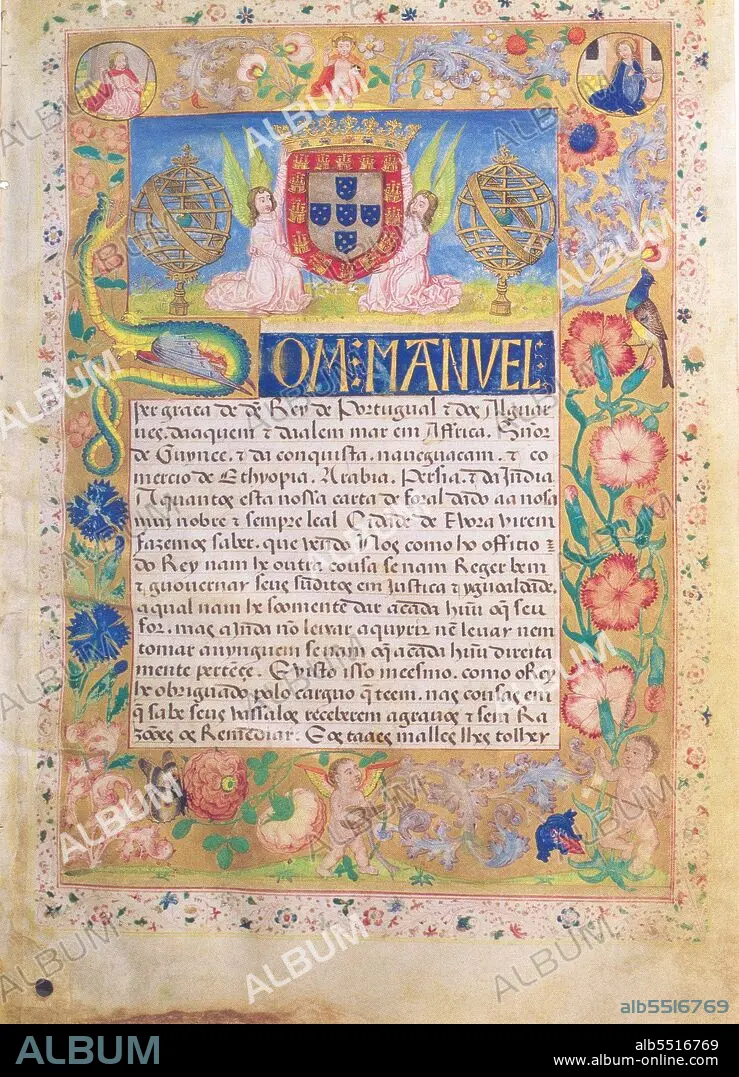 OM: MANVEL:
per graca de ds Rey de Portugual & dos Alguar
ves. daaquem & daalem mar em Affrica. Snor
de Guynee. & da conquista. naueguacam. & co
mercio de Ethyopia. Arabia. Persia. & da India
A quantos esta nossa carta de foral dado aa nosa
mui nobre & sempre leal Cidade de Evora virem
fazemos saber. que vendo Nos como ho officio
do Rey nam he outra cousa se nam Reger bem
& guouernar seus subditos em Justica & ygualdade.
a qual nam he soomente dar a cada huu o q seu
for. mas ajnda no leixar aquyrir ne leuar nem
tomar a nynguem se nam o q a cada huu direita
mente pertençe. E visto isso meesmo. como o Rey
he obriguado polo carguo q teem. nas cousas em
q sabe seus vassalos receberem agrauos & sem Ra
zoões os Remediar. E os taaes malles lhes tolher
ALBUM
alb5516769
ALBUM
alb5516769
www.album-online.com